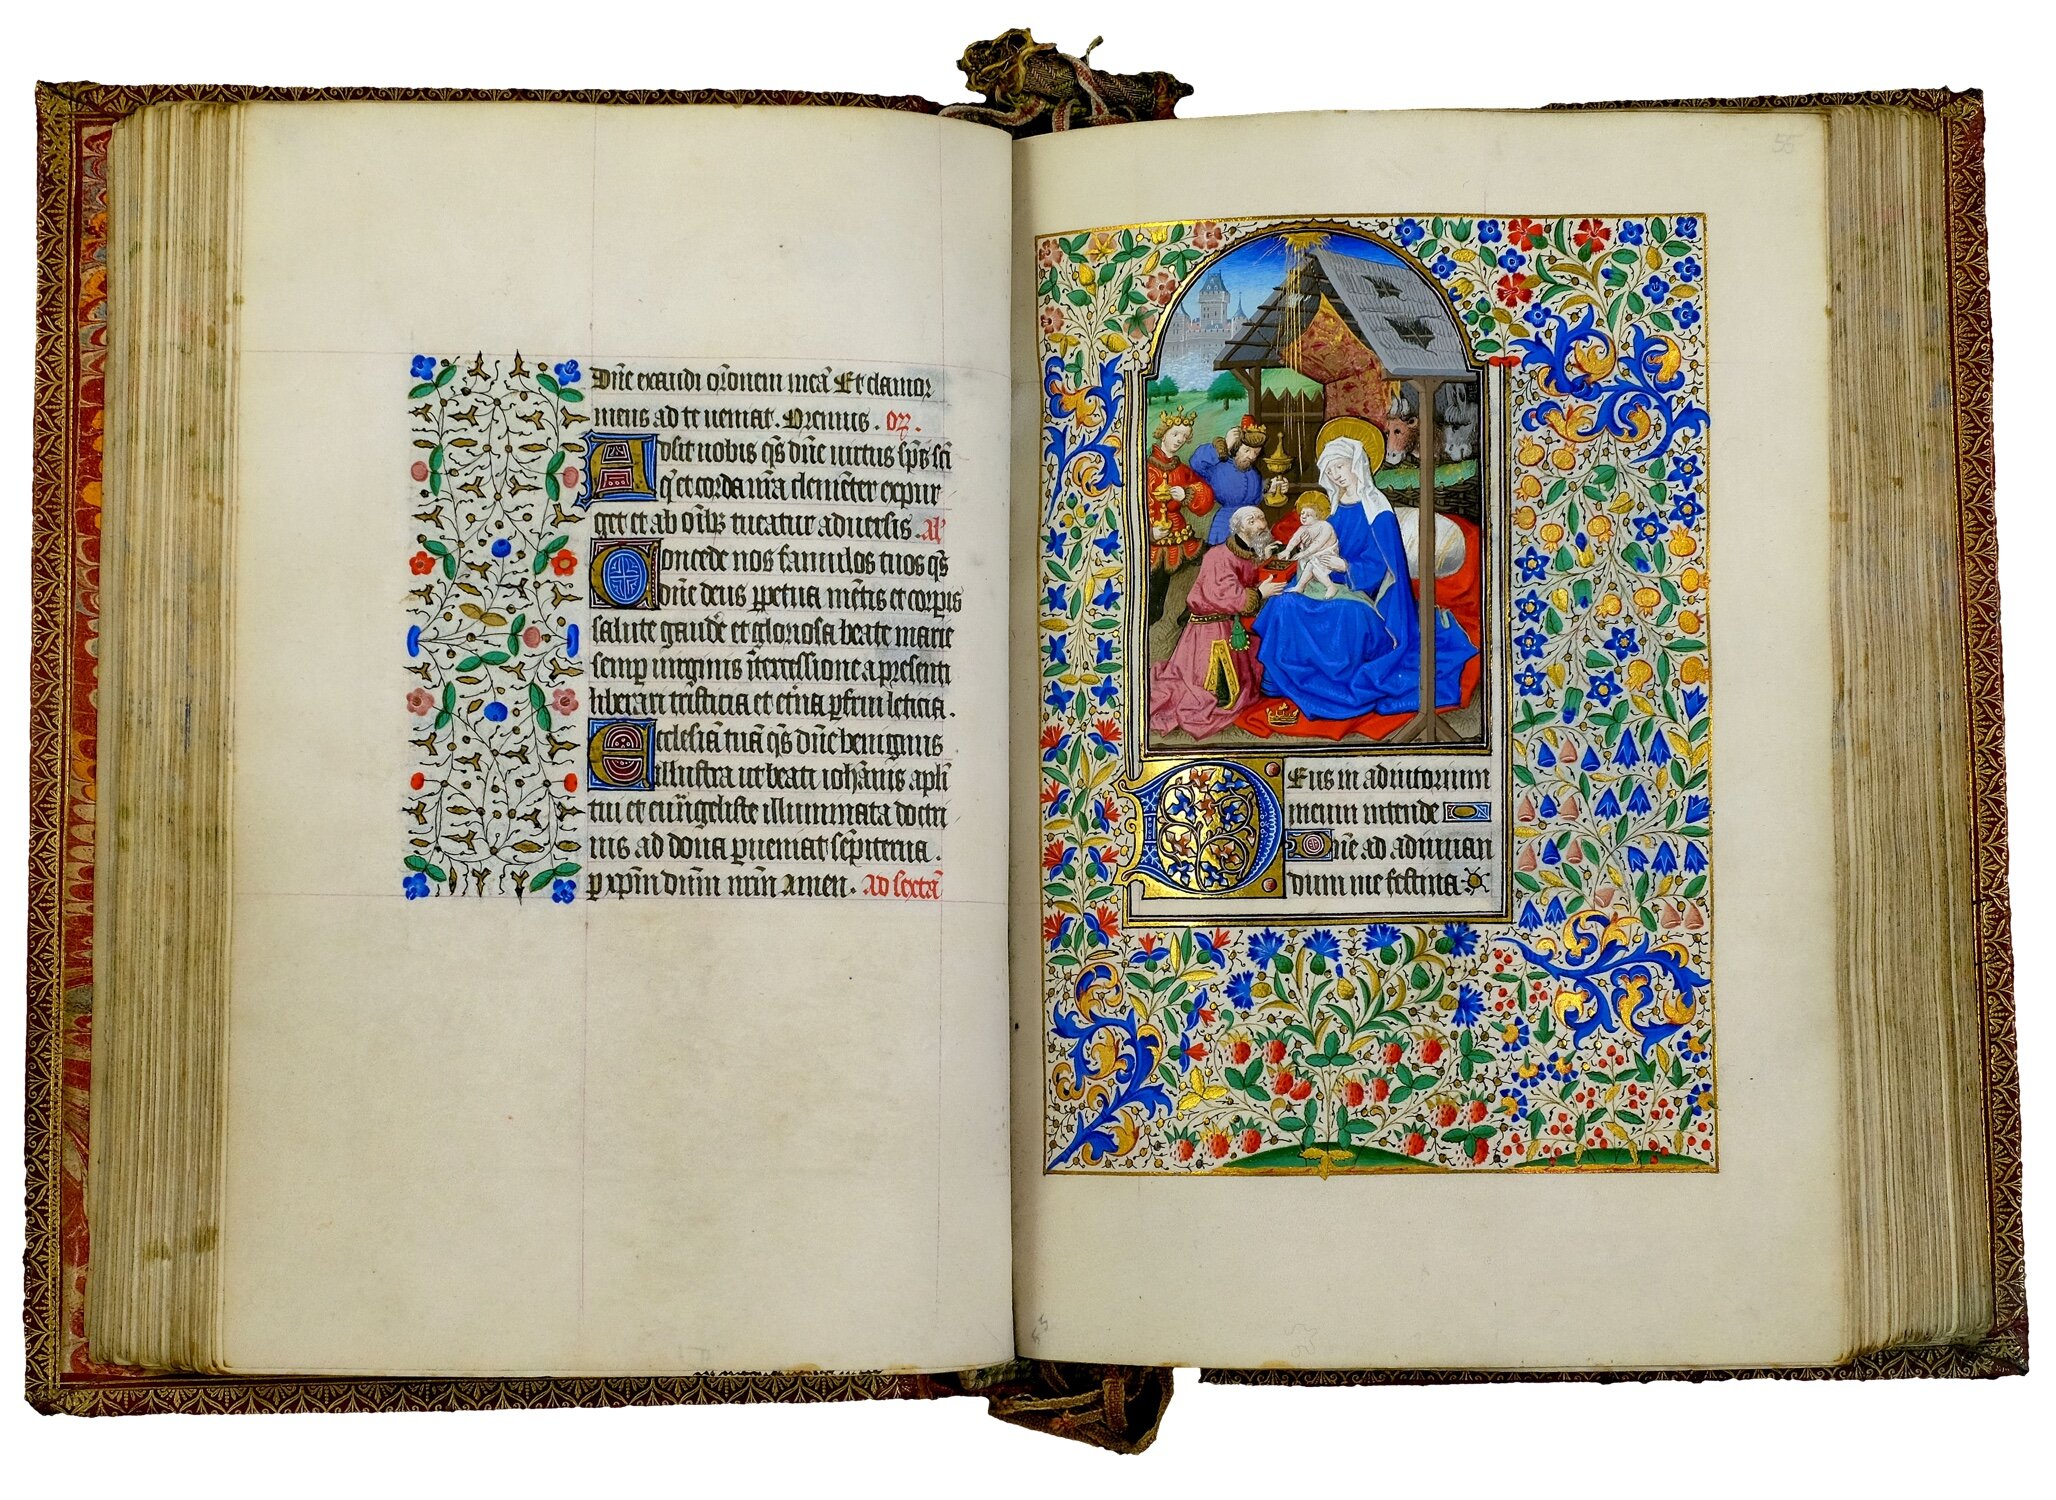 Dñe exaudi orõnem meã Et clamor
meus ad te ueniat. Oremus. Oꝝ.
Adsit nobis qs̃ dñe uirtus sp̃s sc̃i
q̃ et corda nr̃a clemẽter expur
get et ab oĩbꝫ tueatur aduersis. Al'
Concede nos famulos tuos qs̃
dñe deus ꝑpetua mẽtis et corpis
salute gaudẽ et gloriosa beate marie
semꝑ uirginis ĩtercessione a presenti
liberari tristicia et et̃na ꝑfrui leticia.
Ecclesiã tuã qs̃ dñe benignus
illustra ut beati iohãnis apl̃i
tui et euũgeliste illuminata doctri
nis ad dona ꝑueniat sẽpiterna.
ꝑ xp̃m dñm nr̃m Amen. Ad sextã
55
Deus in adiutorium
meum intende
Dñe ad adiuuan
dum me festina